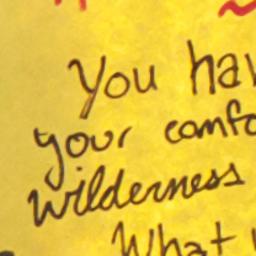 You hav
your comfo
wilderness
What